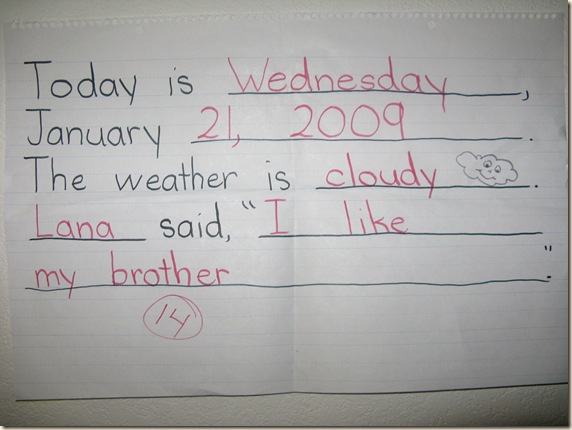 Today is Wednesday,
January 21, 2009.
The weather is cloudy.
Lana said, "I like
my brother."
14